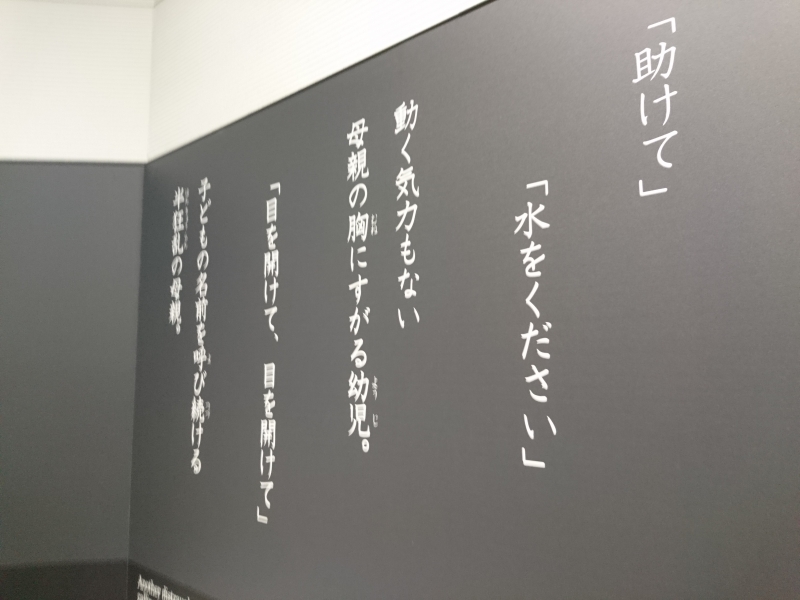 「助けて」
「水をください」
動く気力もない
母親の胸にすがる幼児。
「目を開けて、目を開けて」
子どもの名前を呼び続ける
半狂乱の母親。
Another